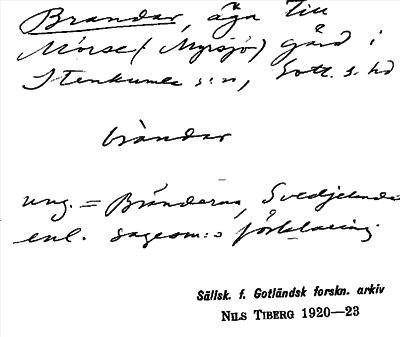 Brandar, äga till
Mörse (Myrsjö) gård i
Stenkumla s:n, Gotl. s. hd
brandar
ung. = Bränderna, Svedjelandet
enl. sagesm:s förklaring.
Sällsk. f. Gotländsk forskn. arkiv
NILS TIBERG 1920—23